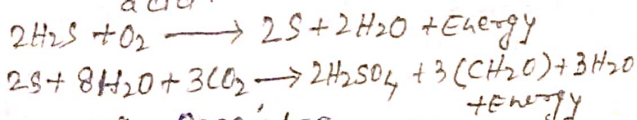 2H2S + O2 ⟶ 2S + 2H2O + Energy
2S + 8H2O + 3CO2 ⟶ 2H2SO4 + 3(CH2O) + 3H2O
+ Energy